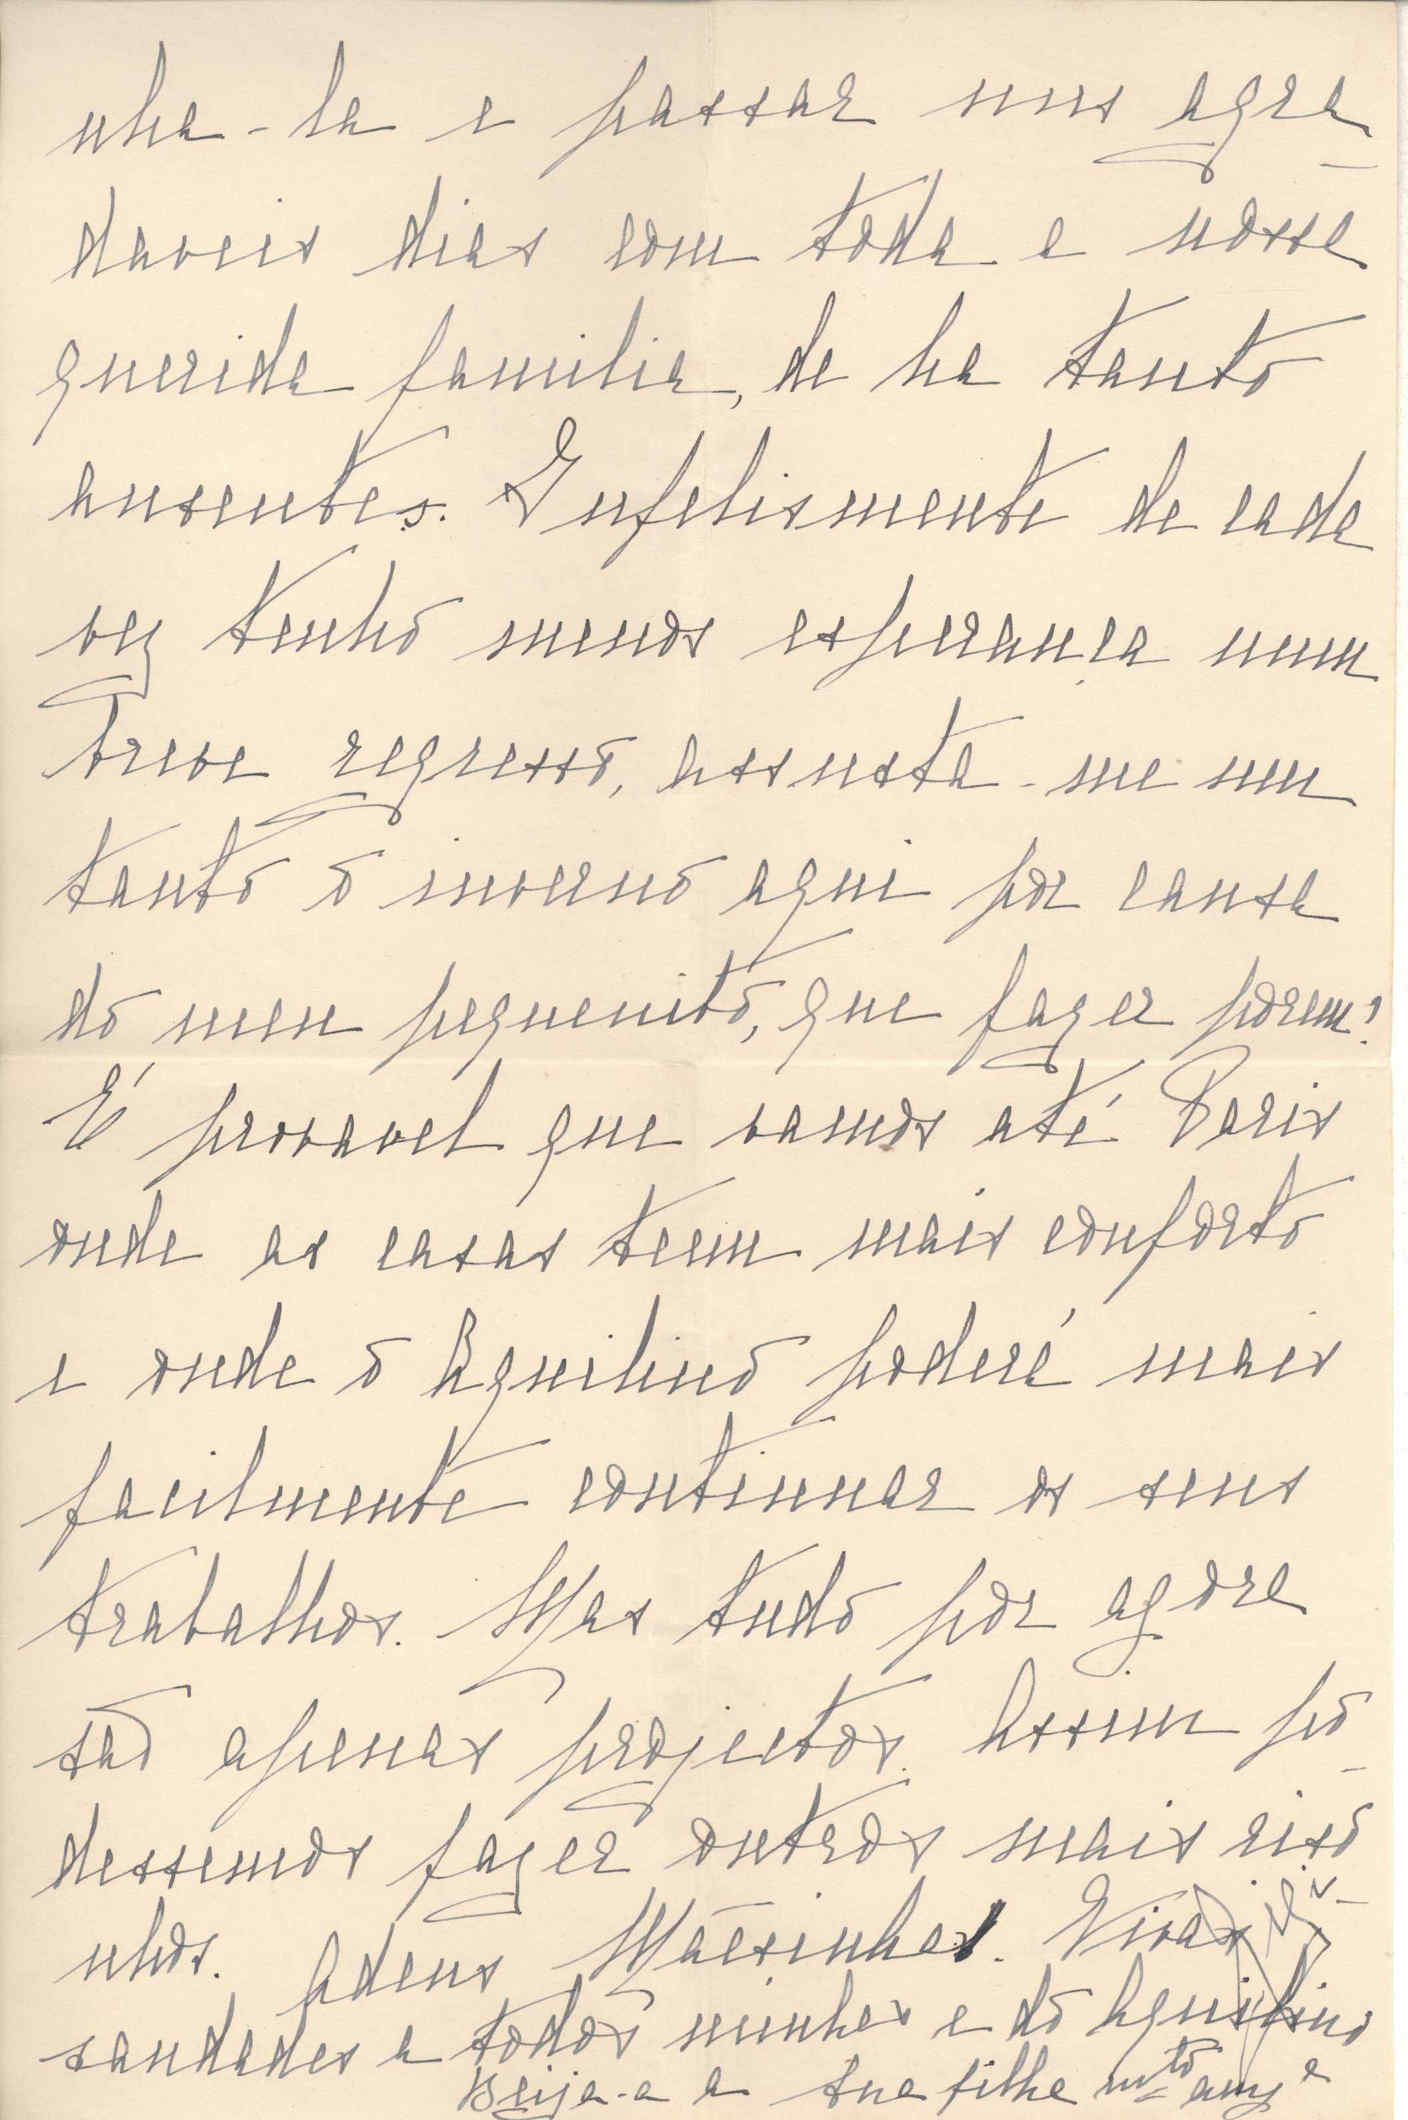 nha-la e passar uns agra-
daveis dias com toda a nossa
querida familia, de ha tanto
ausentes. Infelismente de cada
vez tenho menos esperança num
breve regresso, assusta-me um
tanto o inverno aqui por causa
do meu pequenito, que fazer porem?
É provavel que vamos até Paris
onde as casas teem mais conforto
e onde o Aquilino poderá mais
facilmente continuar os seus
trabalhos. Mas tudo por agora
são apenas projectos. Assim po-
dessemos fazer outros mais riso-
nhos. Adeus Mãesinha. Vivas
saudades a todos minhas e do Aquilino
Beija-a a sua filha mto amga